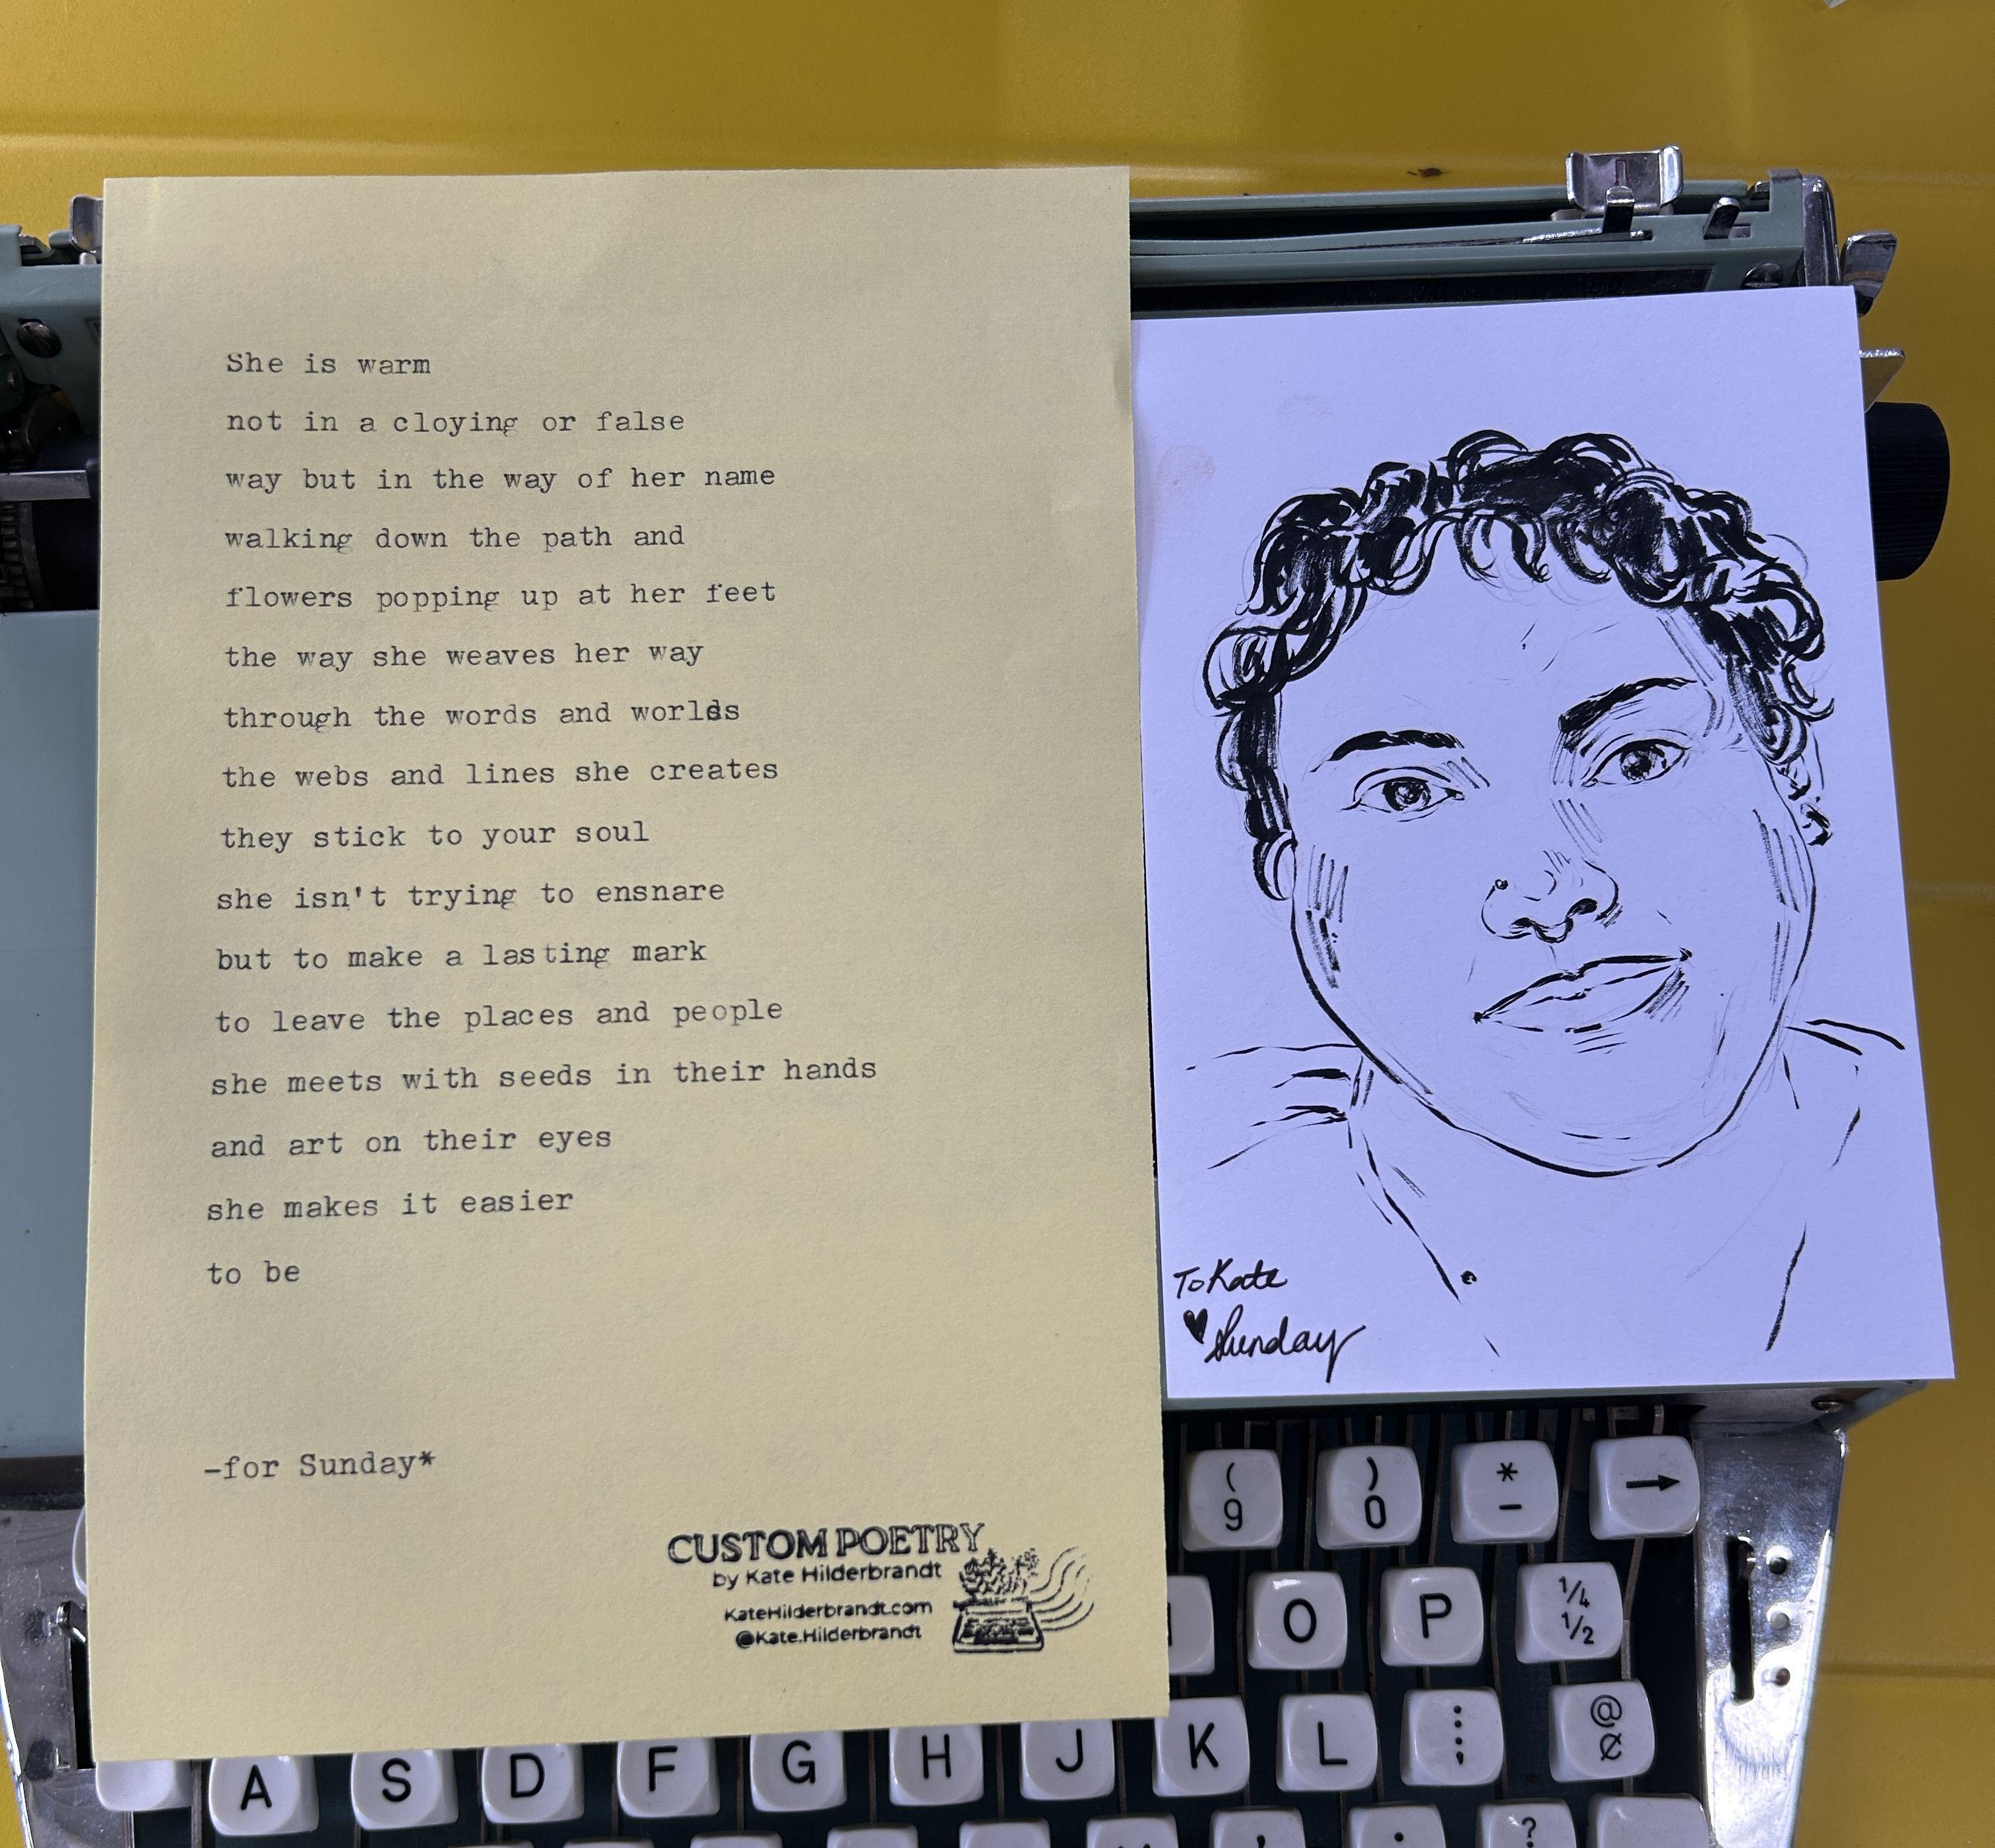 She is warm
not in a cloying or false
way but in the way of her name
walking down the path and
flowers popping up at her feet
the way she weaves her way
through the words and worlds
the webs and lines she creates
they stick to your soul
she isn't trying to ensnare
but to make a lasting mark
to leave the places and people
she meets with seeds in their hands
and art on their eyes
she makes it easier
to be
-for Sunday*
CUSTOM POETRY
by Kate Hilderbrandt
KateHilderbrandt.com
@Kate.Hilderbrandt
To Kate
♥ Sunday
( ) * →
9 0 -
O P 1/4
1/2
A S D F G H J K L : ; @ ¢
, . ?